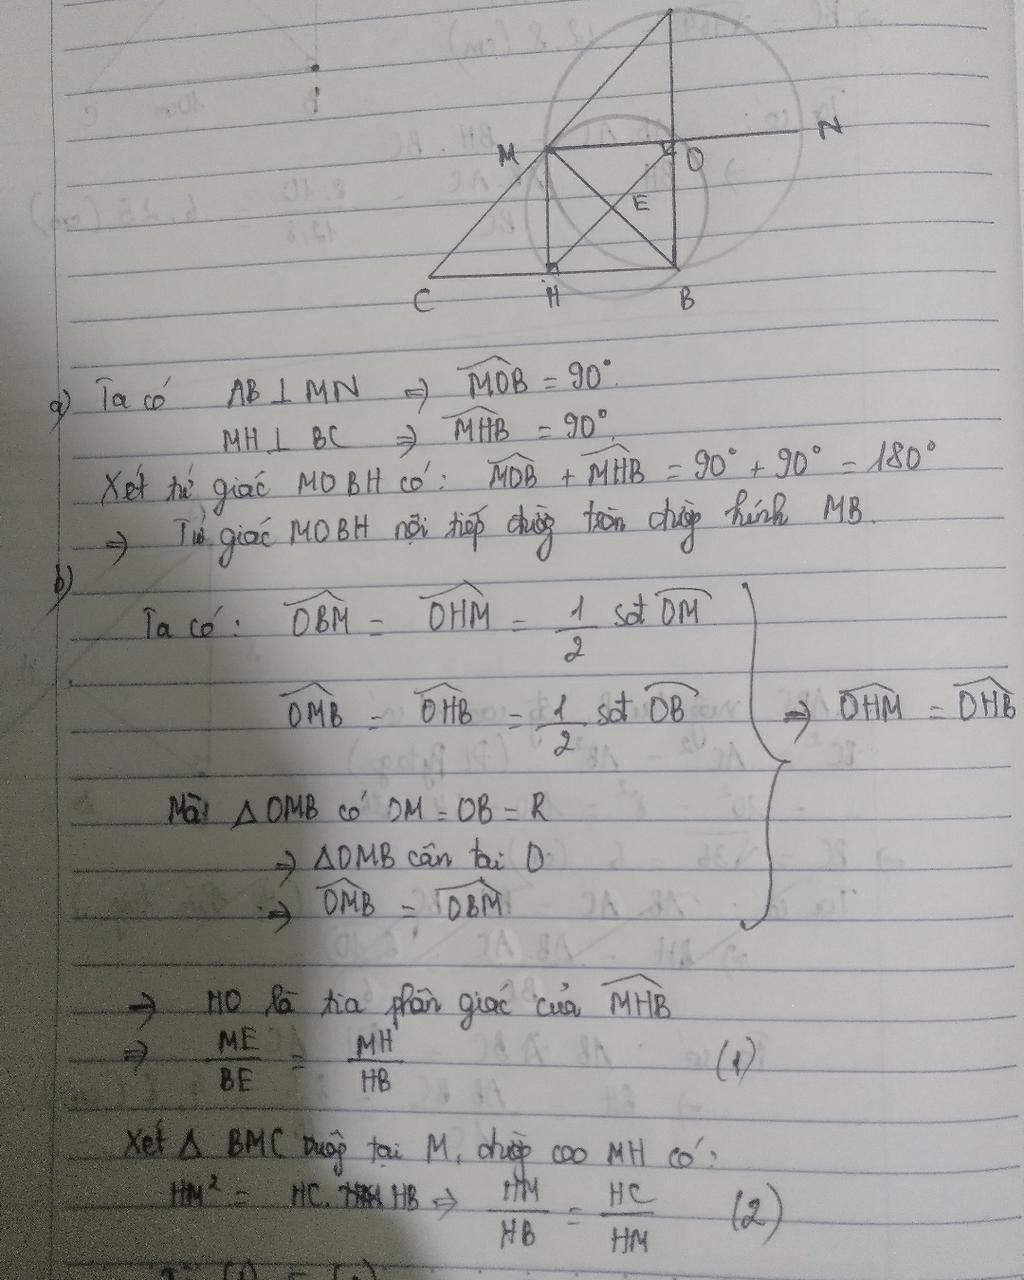 M
O
N
E
C
H
B
a) Ta có AB ⊥ MN ⇒ \widehat{MOB} = 90°.
MH ⊥ BC ⇒ \widehat{MHB} = 90°.
Xét tứ giác MOBH có: \widehat{MOB} + \widehat{MHB} = 90° + 90° = 180°
⇒ Tứ giác MOBH nội tiếp đường tròn đường kính MB.
b)
Ta có: \widehat{OBM} = \widehat{OHM} = 1/2 sđt \overparen{OM}
\widehat{OMB} = \widehat{OHB} = 1/2 sđt \overparen{OB} ⇒ \widehat{OHM} = \widehat{OHB}
Mà △OMB có OM = OB = R
⇒ △OMB cân tại O
⇒ \widehat{OMB} = \widehat{OBM}
⇒ HO là tia phân giác của \widehat{MHB}
⇒ ME/BE = MH/HB (1)
Xét △ BMC vuông tại M, đường cao MH có:
HM² = HC. HB ⇒ HM/HB = HC/HM (2)